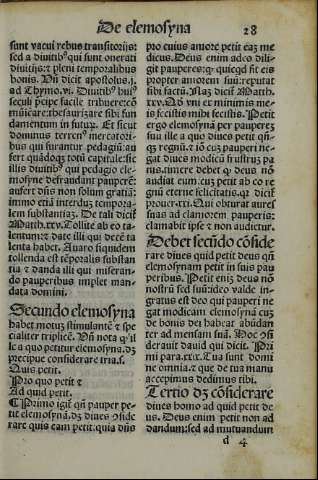 De elemosyna
28
sunt vacui rebus transitorijs:
sed a diuitibꝰ qui sunt onerati
diuitijs: ⁊ pleni temporalibus
bonis. Vn̄ dicit apostolus .j.
ad Thymo. vj. Diuitibꝰ huiꝰ
seculi p̄cipe facile tribuere: cō
mūicare: thesaurizare sibi fun
damentum in futuꝝ. Et sicut
dominus terrenꝰ mercatori-
bus qui furantur pedagiū: au
fert quādoqꝫ totū capitale: sic
illis diuitibꝰ qui pedagio ele-
mosyne defraudant pauperē:
aufert dn̄s non solum gratiā:
immo etiā interduꝫ tempora-
lem substantiaꝫ. De tali dicit
Matth. xxv. Tollite ab eo ta-
lentum: ⁊ date illi qui decē ta
lenta habet. Auaro siquidem
tollenda est tēporalis substan
tia ⁊ danda illi qui miseran-
do pauperibus implet man-
data domini.
Secundo elemosyna
habet motuꝫ stimulantē ⁊ spe
cialiter triplicē. Vn̄ nota qꝰ il
le a quo petitur elemosyna. dꝫ
precipue considerare tria. s.
Quis petit.
Pro quo petit ⁊
Ad quid petit.
¶ Primo igit̄ qn̄ pauper pe-
tit elemosynā. dꝫ diues ꝯside
rare quis eam petit. quia dn̄s
pro cuius amore petit eaꝫ me
dicus. Deus enim adeo dili-
git pauperes: ꝙ quicqͥd fit eis
propter amorem suū: reputat
sibi factū. Naꝫ dicit Matth.
xxv. Qd̓ vni ex minimis me-
is fecistis mihi fecistis. Petit
ergo elemosynā per paupereꝫ
suū ille a quo diues petit qͥc-
qꝫ regnū. ⁊ iō cuꝫ pauperi ne-
gat diues modicū frustuꝫ pa
nis. timere debet ꝙ deus nō
audiat eum. cuꝫ petit ab eo re
gnū eterne felicitatis. ꝙ dicit̄
prouer. xxi. Qui obturat aures
suas ad clamorem pauperis:
clamabit ipse ⁊ non audietur.
Debet secūdo cōside
rare diues quid petit deus qn̄
elemosynam petit in suis pau
peribus. Petit eniꝫ deus nō
nostrū sed suū: ideo valde in-
gratus est deo qui pauperi ne
gat modicam elemosynā cuꝫ
de bonis dei habeat abūdan
ter ad mensam suā. Hoc ꝯsi-
derauit dauid qui dicit. Pri
mi para. xxx. Tua sunt domi
ne omnia. ⁊ que de tua manu
accepimus dedimus tibi.
Tertio dꝫ cōsiderare
diues homo ad quid petit de
us. Deus enim petit non ad
dandum: sed ad mutuandum
d 4